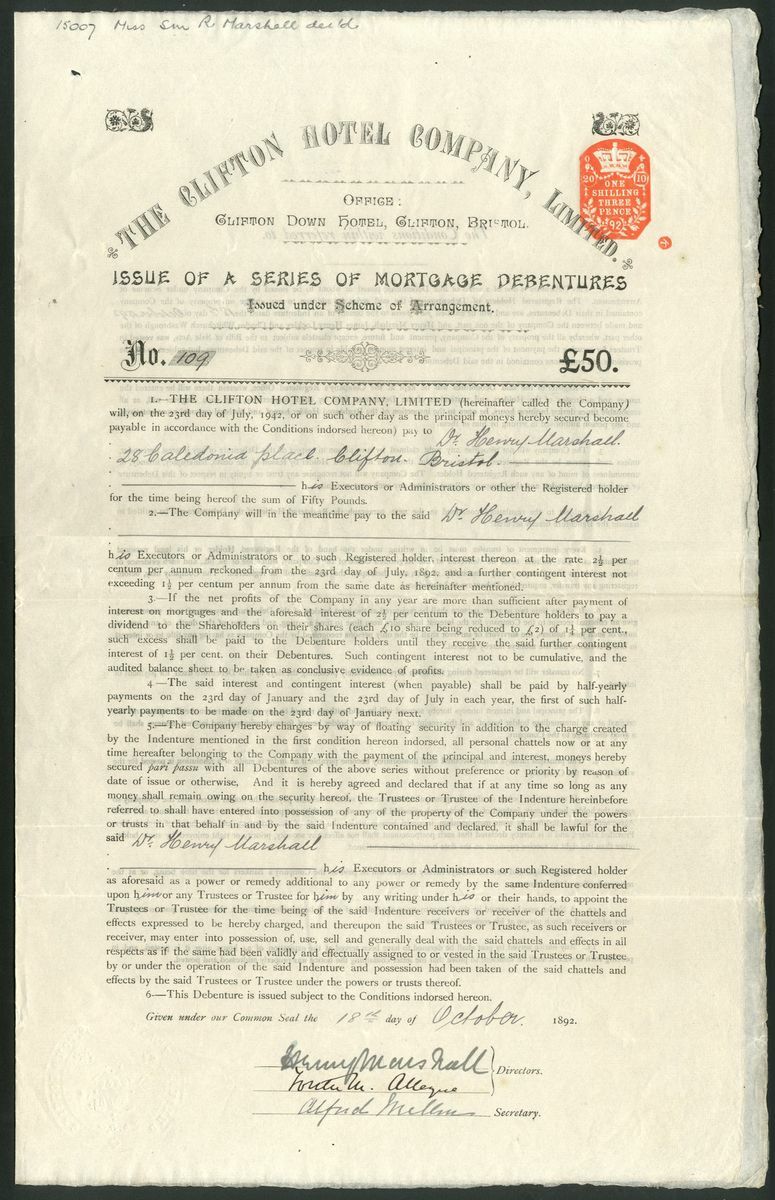 15007 Miss R. Marshall dec'd
THE CLIFTON HOTEL COMPANY, LIMITED.
OFFICE:
CLIFTON DOWN HOTEL, CLIFTON, BRISTOL.
ONE
SHILLING
THREE
PENCE
ISSUE OF A SERIES OF MORTGAGE DEBENTURES
Issued under Scheme of Arrangement.
No. 109 £50.
1.—THE CLIFTON HOTEL COMPANY, LIMITED (hereinafter called the Company)
will, on the 23rd day of July, 1942, or on such other day as the principal moneys hereby secured become
payable in accordance with the Conditions indorsed hereon) pay to Dr. Henry Marshall.
28 Caledonia place. Clifton. Bristol.
his Executors or Administrators or other the Registered holder
for the time being hereof the sum of Fifty Pounds.
2.—The Company will in the meantime pay to the said Dr. Henry Marshall
his Executors or Administrators or to such Registered holder, interest thereon at the rate 2½ per
centum per annum reckoned from the 23rd day of July, 1892, and a further contingent interest not
exceeding 1½ per centum per annum from the same date as hereinafter mentioned.
3.—If the net profits of the Company in any year are more than sufficient after payment of
interest on mortgages and the aforesaid interest of 2½ per centum to the Debenture holders to pay a
dividend to the Shareholders on their shares (each £10 share being reduced to £2) of 1¼ per cent.,
such excess shall be paid to the Debenture holders until they receive the said further contingent
interest of 1½ per cent. on their Debentures. Such contingent interest not to be cumulative, and the
audited balance sheet to be taken as conclusive evidence of profits.
4.—The said interest and contingent interest (when payable) shall be paid by half-yearly
payments on the 23rd day of January and the 23rd day of July in each year, the first of such half-
yearly payments to be made on the 23rd day of January next.
5.—The Company hereby charges by way of floating security in addition to the charge created
by the Indenture mentioned in the first condition hereon indorsed, all personal chattels now or at any
time hereafter belonging to the Company with the payment of the principal and interest, moneys hereby
secured pari passu with all Debentures of the above series without preference or priority by reason of
date of issue or otherwise, And it is hereby agreed and declared that if at any time so long as any
money shall remain owing on the security hereof, the Trustees or Trustee of the Indenture hereinbefore
referred to shall have entered into possession of any of the property of the Company under the powers
or trusts in that behalf in and by the said Indenture contained and declared, it shall be lawful for the
said Dr. Henry Marshall
his Executors or Administrators or such Registered holder
as aforesaid as a power or remedy additional to any power or remedy by the same Indenture conferred
upon him or any Trustees or Trustee for him by any writing under his or their hands, to appoint the
Trustees or Trustee for the time being of the said Indenture receivers or receiver of the chattels and
effects expressed to be hereby charged, and thereupon the said Trustees or Trustee, as such receivers or
receiver, may enter into possession of, use, sell and generally deal with the said chattels and effects in all
respects as if the same had been validly and effectually assigned to or vested in the said Trustees or Trustee
by or under the operation of the said Indenture and possession had been taken of the said chattels and
effects by the said Trustees or Trustee under the powers or trusts thereof.
6.—This Debenture is issued subject to the Conditions indorsed hereon.
Given under our Common Seal the 18th day of October. 1892.
Henry Marshall
Directors.
Alfred
Secretary.